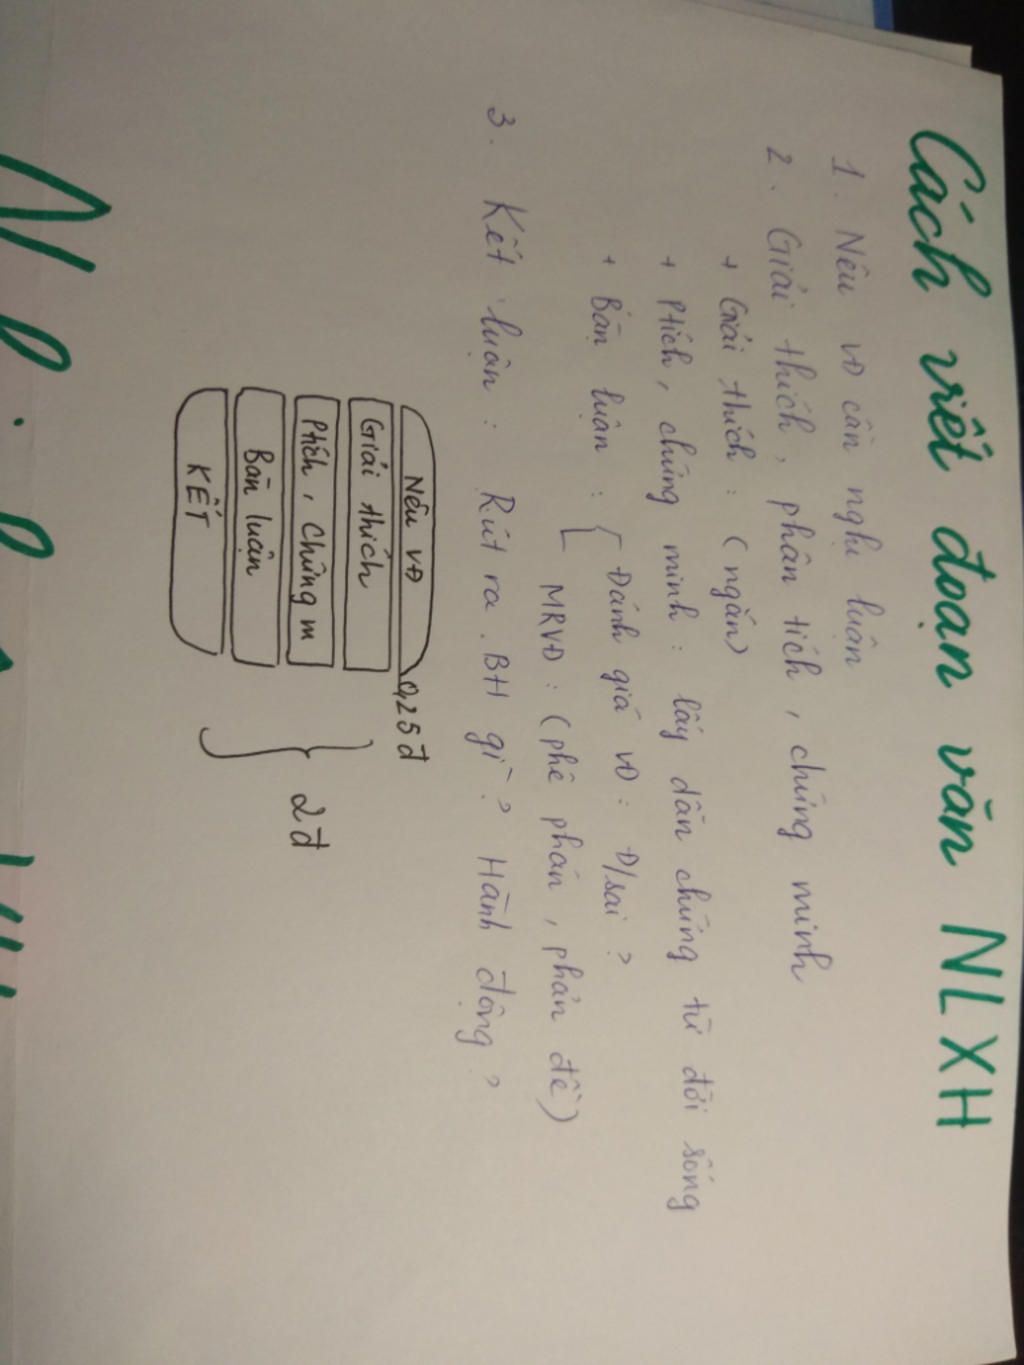 Cách viết đoạn văn NLXH
1. Nêu vĐ cần nghị luận
2. Giải thích, phân tích, chứng minh
+ Giải thích: (ngắn)
+ Ptích, chứng minh: lấy dẫn chứng từ đời sống
+ Bàn luận: [ Đánh giá vĐ: Đ/sai?
MRVĐ: (phê phán, phản đề)
3. Kết luận: Rút ra BH gì? Hành động?
Nêu vĐ 0,25đ
Giải thích
Ptích, chứng m
Bàn luận
KẾT
2đ